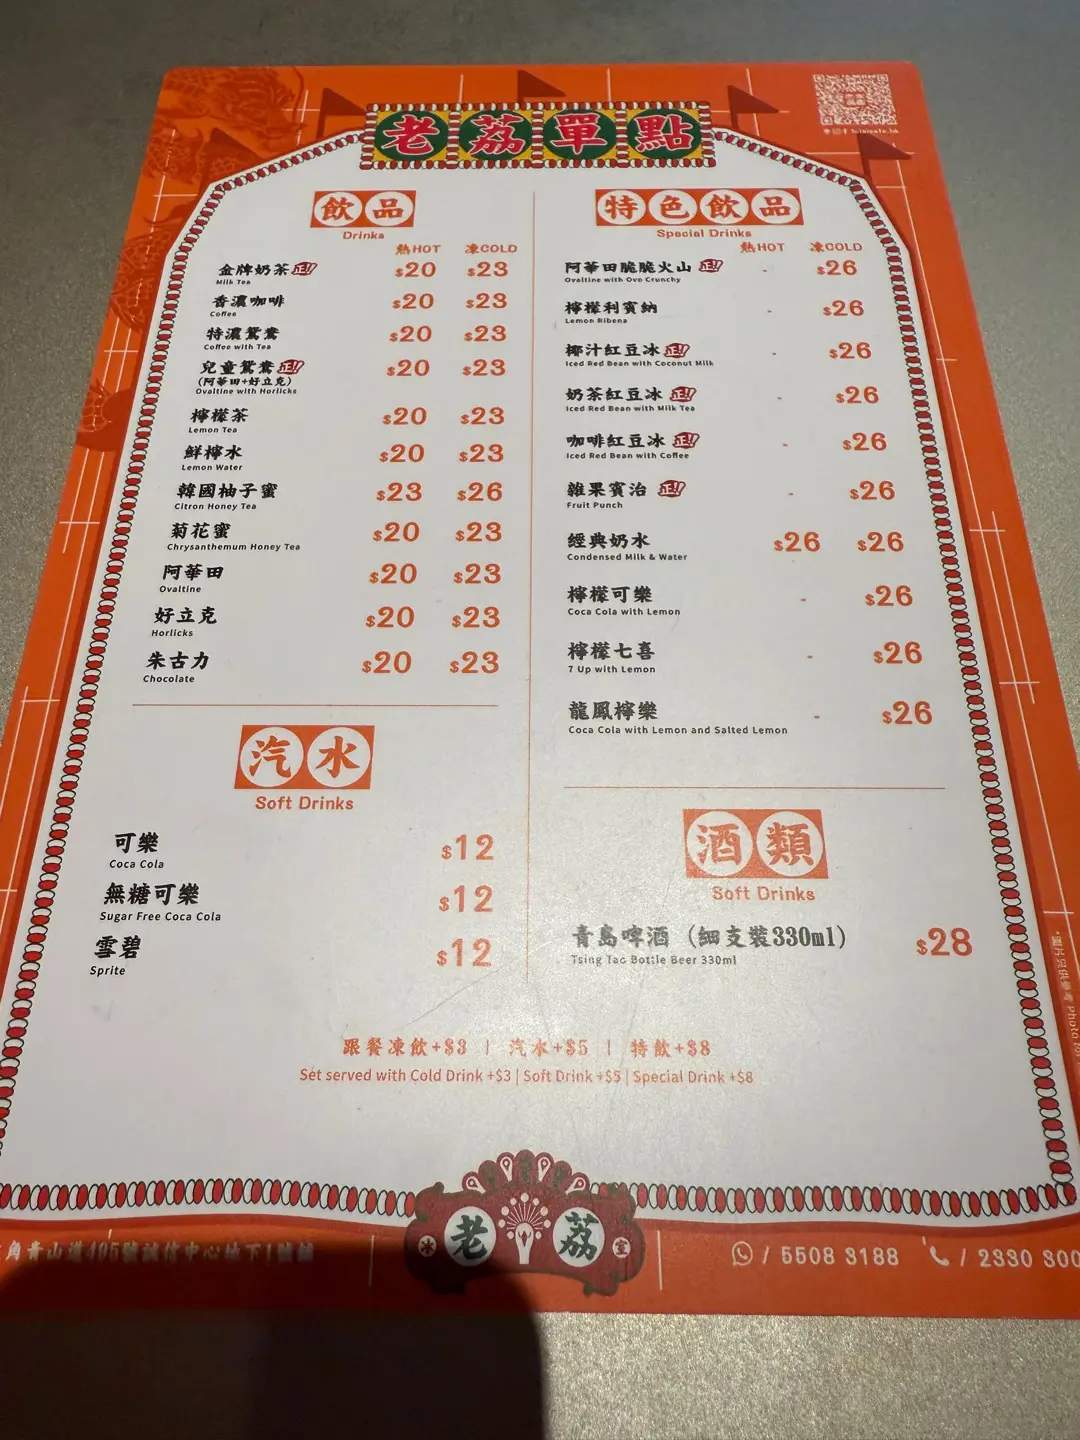 老荔單點
飲品
Drinks
熱HOT 凍COLD
金牌奶茶 正!! $20 $23
Milk Tea
香濃咖啡 $20 $23
Coffee
特濃鴛鴦 $20 $23
Coffee with Tea
兒童鴛鴦 正!! $20 $23
(阿華田+好立克)
Ovaltine with Horlicks
檸檬茶 $20 $23
Lemon Tea
鮮檸水 $20 $23
Lemon Water
韓國柚子蜜 $23 $26
Citron Honey Tea
菊花蜜 $20 $23
Chrysanthemum Honey Tea
阿華田 $20 $23
Ovaltine
好立克 $20 $23
Horlicks
朱古力 $20 $23
Chocolate
汽水
Soft Drinks
可樂 $12
Coca Cola
無糖可樂 $12
Sugar Free Coca Cola
雪碧 $12
Sprite
特色飲品
Special Drinks
熱HOT 凍COLD
阿華田脆脆火山 正!! - $26
Ovaltine with Ovo Crunchy
檸檬利賓納 - $26
Lemon Ribena
椰汁紅豆冰 正!! - $26
Iced Red Bean with Coconut Milk
奶茶紅豆冰 正!! - $26
Iced Red Bean with Milk Tea
咖啡紅豆冰 正!! - $26
Iced Red Bean with Coffee
雜果賓治 正!! - $26
Fruit Punch
經典奶水 $26 $26
Condensed Milk & Water
檸檬可樂 - $26
Coca Cola with Lemon
檸檬七喜 - $26
7 Up with Lemon
龍鳳檸樂 - $26
Coca Cola with Lemon and Salted Lemon
酒類
Soft Drinks
青島啤酒 (細支裝330ml) $28
Tsing Tao Bottle Beer 330ml
跟餐凍飲+$3 | 汽水+$5 | 特飲+$8
Set served with Cold Drink +$3 | Soft Drink +$5 | Special Drink +$8
*圖片只供參考 Photo
冰 老荔 室
角青山道405號誠信中心地下1號舖
/ 5508 3188
/ 2330 300